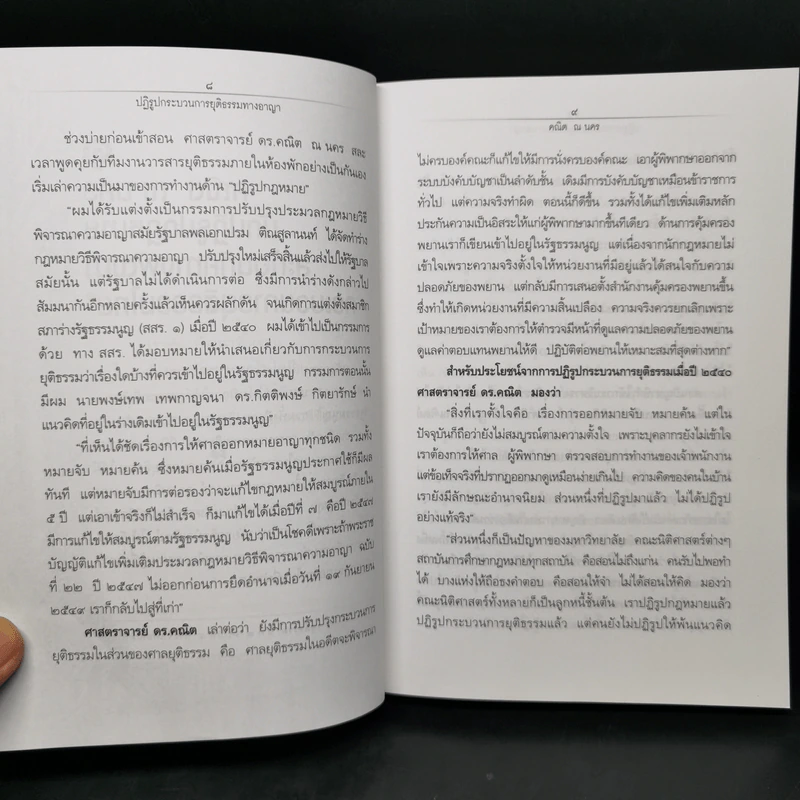 ๘
ปฏิรูปกระบวนการยุติธรรมทางอาญา
ช่วงบ่ายก่อนเข้าสอน ศาสตราจารย์ ดร.คณิต ณ นคร สละ
เวลาพูดคุยกับทีมงานวารสารยุติธรรมภายในห้องพักอย่างเป็นกันเอง
เริ่มเล่าความเป็นมาของการทำงานด้าน "ปฏิรูปกฎหมาย"
"ผมได้รับแต่งตั้งเป็นกรรมการปรับปรุงประมวลกฎหมายวิธี
พิจารณาความอาญาสมัยรัฐบาลพลเอกเปรม ติณสูลานนท์ ได้จัดทำร่าง
กฎหมายวิธีพิจารณาความอาญา ปรับปรุงใหม่เสร็จสิ้นแล้วส่งไปให้รัฐบาล
สมัยนั้น แต่รัฐบาลไม่ได้ดำเนินการต่อ ซึ่งมีการนำร่างดังกล่าวไป
สัมมนากันอีกหลายครั้งแล้วเห็นควรผลักดัน จนเกิดการแต่งตั้งสมาชิก
สภาร่างรัฐธรรมนูญ (สสร. ๑) เมื่อปี ๒๕๔๐ ผมได้เข้าไปเป็นกรรมการ
ด้วย ทาง สสร. ได้มอบหมายให้นำเสนอเกี่ยวกับการกระบวนการ
ยุติธรรมว่าเรื่องใดบ้างที่ควรเข้าไปอยู่ในรัฐธรรมนูญ กรรมการตอนนั้น
มีผม นายพงษ์เทพ เทพกาญจนา ดร.กิตติพงษ์ กิตยารักษ์ นำ
แนวคิดที่อยู่ในร่างเดิมเข้าไปอยู่ในรัฐธรรมนูญ"
"ที่เห็นได้ชัดเรื่องการให้ศาลออกหมายอาญาทุกชนิด รวมทั้ง
หมายจับ หมายค้น ซึ่งหมายค้นเมื่อรัฐธรรมนูญประกาศใช้ก็มีผล
ทันที แต่หมายจับมีการต่อรองว่าจะแก้ไขกฎหมายให้สมบูรณ์ภายใน
๕ ปี แต่เอาเข้าจริงก็ไม่สำเร็จ ก็มาแก้ไขได้เมื่อปีที่ ๗ คือปี ๒๕๔๗
มีการแก้ไขให้สมบูรณ์ตามรัฐธรรมนูญ นับว่าเป็นโชคดีเพราะถ้าพระราช
บัญญัติแก้ไขเพิ่มเติมประมวลกฎหมายวิธีพิจารณาความอาญา ฉบับ
ที่ ๒๒ ปี ๒๕๔๗ ไม่ออกก่อนการยึดอำนาจเมื่อวันที่ ๑๙ กันยายน
๒๕๔๙ เราก็กลับไปสู่ที่เก่า"
ศาสตราจารย์ ดร.คณิต เล่าต่อว่า ยังมีการปรับปรุงกระบวนการ
ยุติธรรมในส่วนของศาลยุติธรรม คือ ศาลยุติธรรมในอดีตจะพิจารณา
๙
คณิต ณ นคร
ไม่ครบองค์คณะก็แก้ไขให้มีการนั่งครบองค์คณะ เอาผู้พิพากษาออกจาก
ระบบบังคับบัญชาเป็นลำดับชั้น เดิมมีการบังคับบัญชาเหมือนข้าราชการ
ทั่วไป แต่ความจริงทำผิด ตอนนี้ก็ดีขึ้น รวมทั้งได้แก้ไขเพิ่มเติมหลัก
ประกันความเป็นอิสระให้แก่ผู้พิพากษามากขึ้นทีเดียว ด้านการคุ้มครอง
พยานเราก็เขียนเข้าไปอยู่ในรัฐธรรมนูญ แต่เนื่องจากนักกฎหมายไม่
เข้าใจเพราะความจริงตั้งใจให้หน่วยงานที่มีอยู่แล้วได้สนใจกับความ
ปลอดภัยของพยาน แต่กลับมีการเสนอตั้งสำนักงานคุ้มครองพยานขึ้น
ซึ่งทำให้เกิดหน่วยงานที่มีความสิ้นเปลือง ความจริงควรยกเลิกเพราะ
เป้าหมายของเราต้องการให้ตำรวจมีหน้าที่ดูแลความปลอดภัยของพยาน
ดูแลค่าตอบแทนพยานให้ดี ปฏิบัติต่อพยานให้เหมาะสมที่สุดต่างหาก"
สำหรับประโยชน์จากการปฏิรูปกระบวนการยุติธรรมเมื่อปี ๒๕๔๐
ศาสตราจารย์ ดร.คณิต มองว่า
"สิ่งที่เราตั้งใจคือ เรื่องการออกหมายจับ หมายค้น แต่ใน
ปัจจุบันก็ถือว่ายังไม่สมบูรณ์ตามความตั้งใจ เพราะบุคลากรยังไม่เข้าใจ
เราต้องการให้ศาล ผู้พิพากษา ตรวจสอบการทำงานของเจ้าพนักงาน
แต่ข้อเท็จจริงที่ปรากฏออกมาดูเหมือนง่ายเกินไป ความคิดของคนในบ้าน
เรายังมีลักษณะอำนาจนิยม ส่วนหนึ่งที่ปฏิรูปมาแล้ว ไม่ได้ปฏิรูป
อย่างแท้จริง"
"ส่วนหนึ่งก็เป็นปัญหาของมหาวิทยาลัย คณะนิติศาสตร์ต่างๆ
สถาบันการศึกษากฎหมายทุกสถาบัน คือสอนไม่ถึงแก่น คนรับไปพอทำ
ได้ บางแห่งให้ถือธงคำตอบ คือสอนให้จำ ไม่ได้สอนให้คิด มองว่า
คณะนิติศาสตร์ทั้งหลายก็เป็นลูกหนี้ชั้นต้น เราปฏิรูปกฎหมายแล้ว
ปฏิรูปกระบวนการยุติธรรมแล้ว แต่คนยังไม่ปฏิรูปให้พ้นแนวคิด